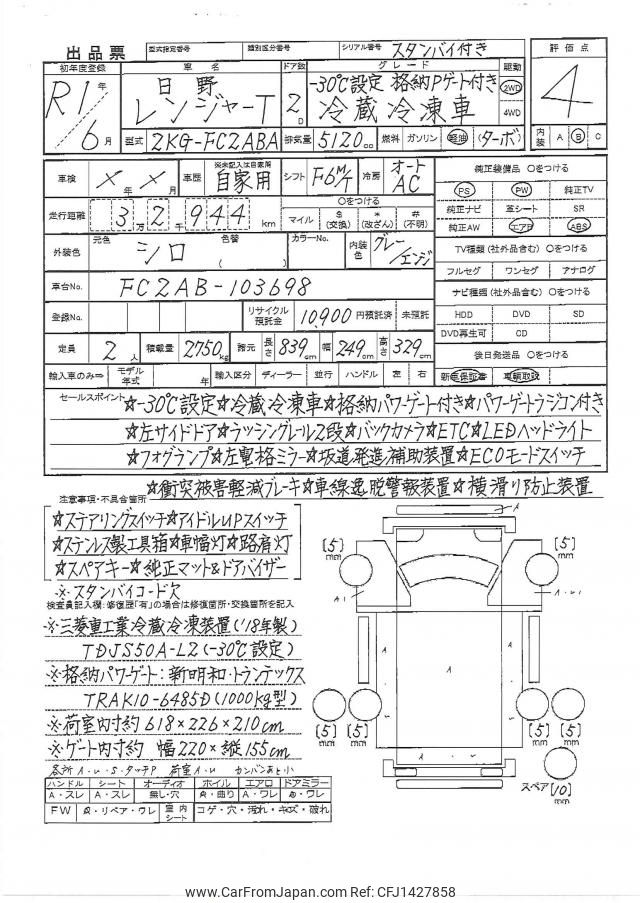 出品票 型式指定番号 類別区分番号 シリアル番号 スタンバイ付き 評価点
初年度登録 車名 ドア数 グレード 駆動
R1年 6月 日野 レンジャーT 2D -30℃設定 格納Pゲート付き 2WD 4
冷蔵冷凍車 4WD
型式 2KG-FC2ABA 排気量 5120cc 燃料 ガソリン 軽油 (ターボ) 内装 A B C
車検 ×年×月 車歴 ※未記入は自家用 自家用 シフト F6M/T 冷房 オートAC 純正装備品 ○をつける
PS PW 純正TV
走行距離 3万2千944km ○をつける マイル $(交換) *(改ざん) #(不明) 純正ナビ 革シート SR
純正AW エアB ABS
外装色 元色 シロ 色替 カラーNo. 内装色 グレー/エンジ TV種類(社外品含む) ○をつける
フルセグ ワンセグ アナログ
車台No. FC2AB-103698 ナビ種類(社外品含む) ○をつける
登録No. リサイクル預託金 10,900 円預託済 未預託 HDD DVD SD
DVD再生可 CD
定員 2人 積載量 2750kg 諸元 長さ 839cm 幅 249cm 高さ 329cm 後日発送品 ○をつける
輸入車のみ⇒ モデル年式 年 輸入区分 ディーラー 並行 ハンドル 左 右 新車保証書 車輌取説
セールスポイント ☆-30℃設定☆冷蔵冷凍車☆格納パワーゲート付き☆パワーゲートラジコン付き
☆左サイドドア☆ラッシングレール2段☆バックカメラ☆ETC☆LEDヘッドライト
☆フォグランプ☆左電格ミラー☆坂道発進補助装置☆ECOモードスイッチ
☆衝突被害軽減ブレーキ☆車線逸脱警報装置☆横滑り防止装置
注意事項・不具合箇所
☆ステアリングスイッチ☆アイドルUPスイッチ
☆ステンレス製工具箱☆車幅灯☆路肩灯
☆スペアキー☆純正マット&ドアバイザー
※スタンバイコード欠
検査員記入欄:修復歴「有」の場合は修復箇所・交換箇所を記入
※三菱重工業冷蔵冷凍装置('18年製)
TDJS50A-L2(-30℃設定)
※格納パワーゲート:新明和・トランテックス
TRAK10-6485D(1000kg型)
※荷室内寸約618×226×210cm
※ゲート内寸約 幅220×縦155cm
各所A・U・S・タッチP 荷室A・U カンバンあと小
ハンドル シート オーディオ ホイル エアロ ドアミラー
A・スレ A・スレ 無し・穴 A・曲り A・ワレ A・ワレ
FW A・リペア・ワレ 室内シート コゲ・穴・汚れ・キズ・破れ
A
[5]mm [5]mm
A1 A・U1
A A A
[5]mm [5]mm [5]mm [5]mm
A
スペア[10]mm
www.CarFromJapan.com Ref: CFJ1427858